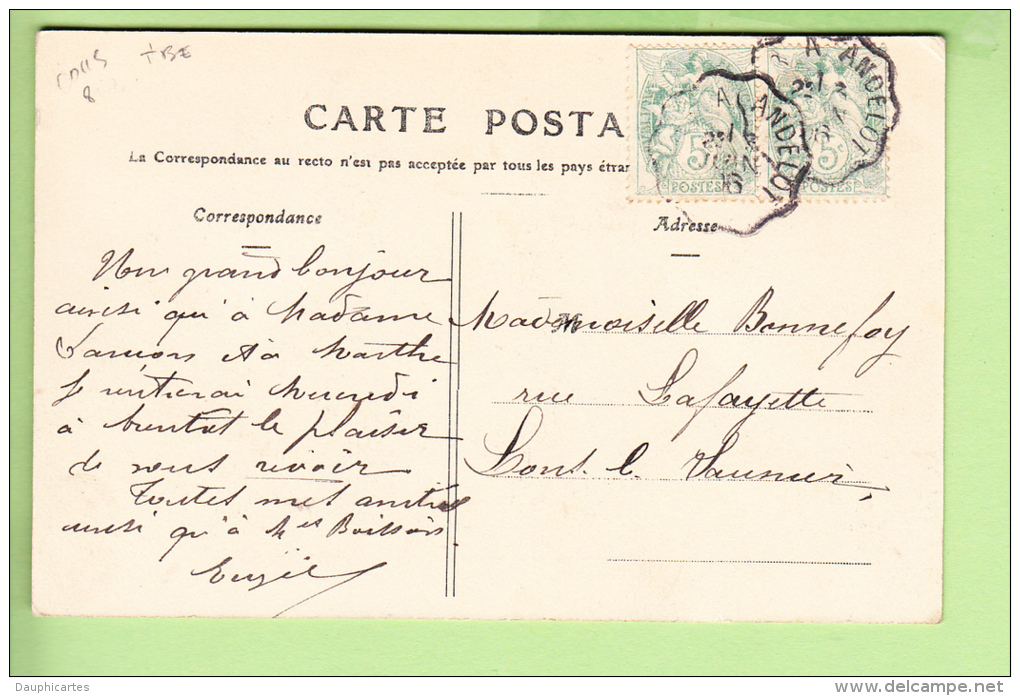 + BE
8
CARTE POSTA
La Correspondance au recto n'est pas acceptée par tous les pays étran
5c
POSTES
5c
POSTES
A ANDELOT
A ANDELOT
JUIN
Correspondance
Adresse
Mon grand bonjour
ainsi qu'à Madame
et à Marthe
Je rentrerai Mercredi
à bientôt le plaisir
de vous revoir
Toutes mes amitiés
ainsi qu'à
Mademoiselle Bonnefoy
rue Lafayette
Lons le Saunier
Dauphicartes
www.delcampe.net